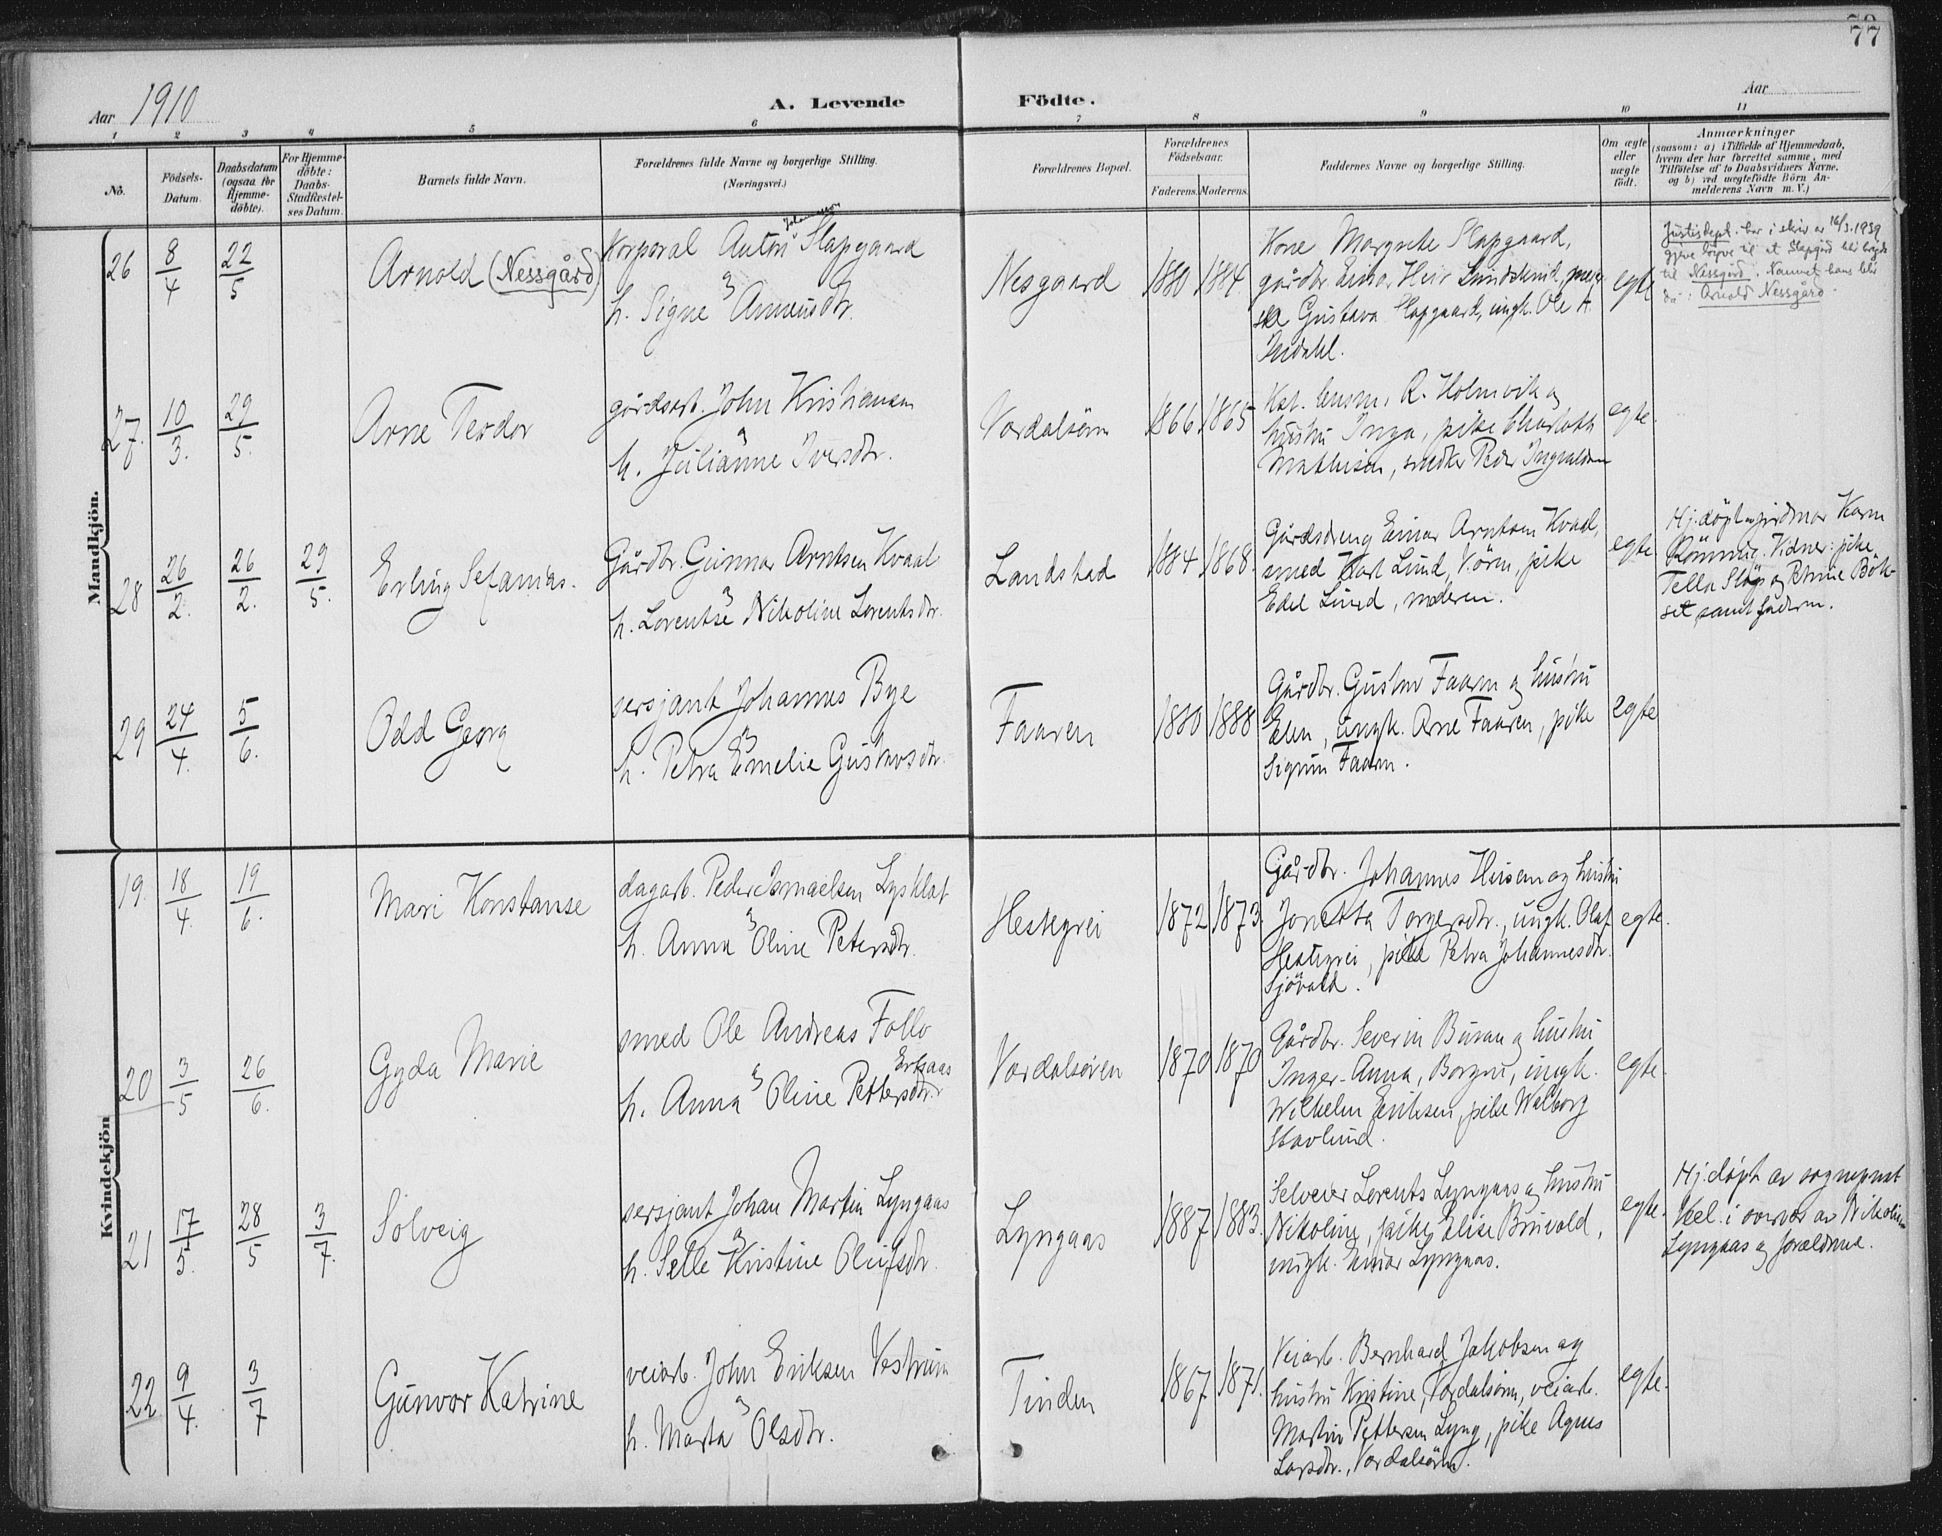 77
Aar 1910
A. Levende
Födte.
Aar
1 2 3 4 5 6 7 8 9 10 11
No.
Födsels-Datum.
Daabsdatum (ogsaa for Hjemme-döbte).
For Hjemme-döbte: Daabs-Stadfæstel-ses Datum.
Barnets fulde Navn.
Forældrenes fulde Navne og borgerlige Stilling.
(Næringsvei.)
Forældrenes Bopæl.
Forældrenes Födselsaar.
Faderens. Moderens.
Faddernes Navne og borgerlige Stilling.
Om ægte eller uægte födt.
Anmærkninger
(saasom: a) i Tilfælde af Hjemmedaab,
hvem der har forrettet samme, med
Tilföielse af to Daabsvidners Navne.
og b) ved uægtefödte Börn An-
melderens Navn m. V.)
Mandkjön.
26 8/4 22/5 Arnold (Nessgård)
Korporal Anton Johannesen Slapgaard
h. Signe Anneusdtr.
Nesgaard 1880 1884
Kone Margrete Slapgaard,
gårdbr. Einar Heir
Gustava Slapgaard, ungk. Ole A.
Indahl.
egte
Justisdept. har i skriv av 16/3.1939
gjeve löyve til at Slapgård bli bygt
til Nessgård. Namnet hans blir
då: Arnold Nessgård.
27. 10/3. 29/5. Arne Teodor
gårdsarb. John Kristiansen
h. Julianne Iversdtr.
Værdalsören 1866 1865
R. Holmvik og
hustru Inga, pike Charlotte
Mathisen, snedker Peder Ingvaldsen
egte.
28 26/2. 26/2. 29/5. Erling Sefanias.
Gårdbr. Gunnar Arntsen Kvaal
h. Lorentse Nikoline Lorentsdtr.
Landstad 1884 1868.
Gårdsdreng Einar Arntsen Kvaal,
smed Karl Lund, Vören, pike
Edel Lund, moderen.
egte
Hj.döpt av jordmor Karen
Römme. Vidner: pike
Tella Slöjs og Bök-
set, samt faderen.
29 24/4. 5/6. Odd Georg
sersjant Johannes Bye
h. Petra Emelie Gustavsdtr.
Faaren 1880 1888
Gårdbr. Gustav Faaren og hustru
Elen, ungk. Arne Faaren, pike
Sigrun Faaren.
egte
Kvindekjön
19. 18/4. 19/6. Mari Konstanse
dagarb. Peder Ismaelsen Lysklat
h. Anna Oline Petersdtr.
Hestegrei 1872 1873.
Gårdbr. Johannes Husan og hustru
Jonetta Torgersdtr., ungk. Olaf
Hestegrei, pike Petra Johannesdtr.
Sjövold.
egte.
20 3/5 26/6. Gyda Marie
smed Ole Andreas Follo
h. Anna Oline Pettersdtr. Ertsaas
Værdalsören 1870 1870
Gårdbr. Severin Buran og hustru
Inger-Anna, Borgen, ungk.
Wilhelm Eriksen, pike Walborg
Stavlund.
egte.
21 17/5. 28/5 3/7. Solveig
sersjant Johan Martin Lyngaas
h. Selle Kristine Olufsdtr.
Lyngaas 1887 1883.
Selveier Lorents Lyngaas og hustru
Nikoline, pike Elise Bruvold,
ungk. Einar Lyngaas.
egte.
Hj.döpt av sogneprest
Keel. i overvær av Nikoline
Lyngaas og forældrene.
22 9/4. 3/7 Gunvor Katrine
veiarb. John Eriksen Vestrum
h. Marta Olsdtr.
Tinden 1867 1871.
Veiarb. Bernhard Jakobsen og
hustru Kristine, Værdalsören, veiarb.
Martin Pettersen Lyng, pike Agnes
Larsdtr., Værdalsören.
egte.